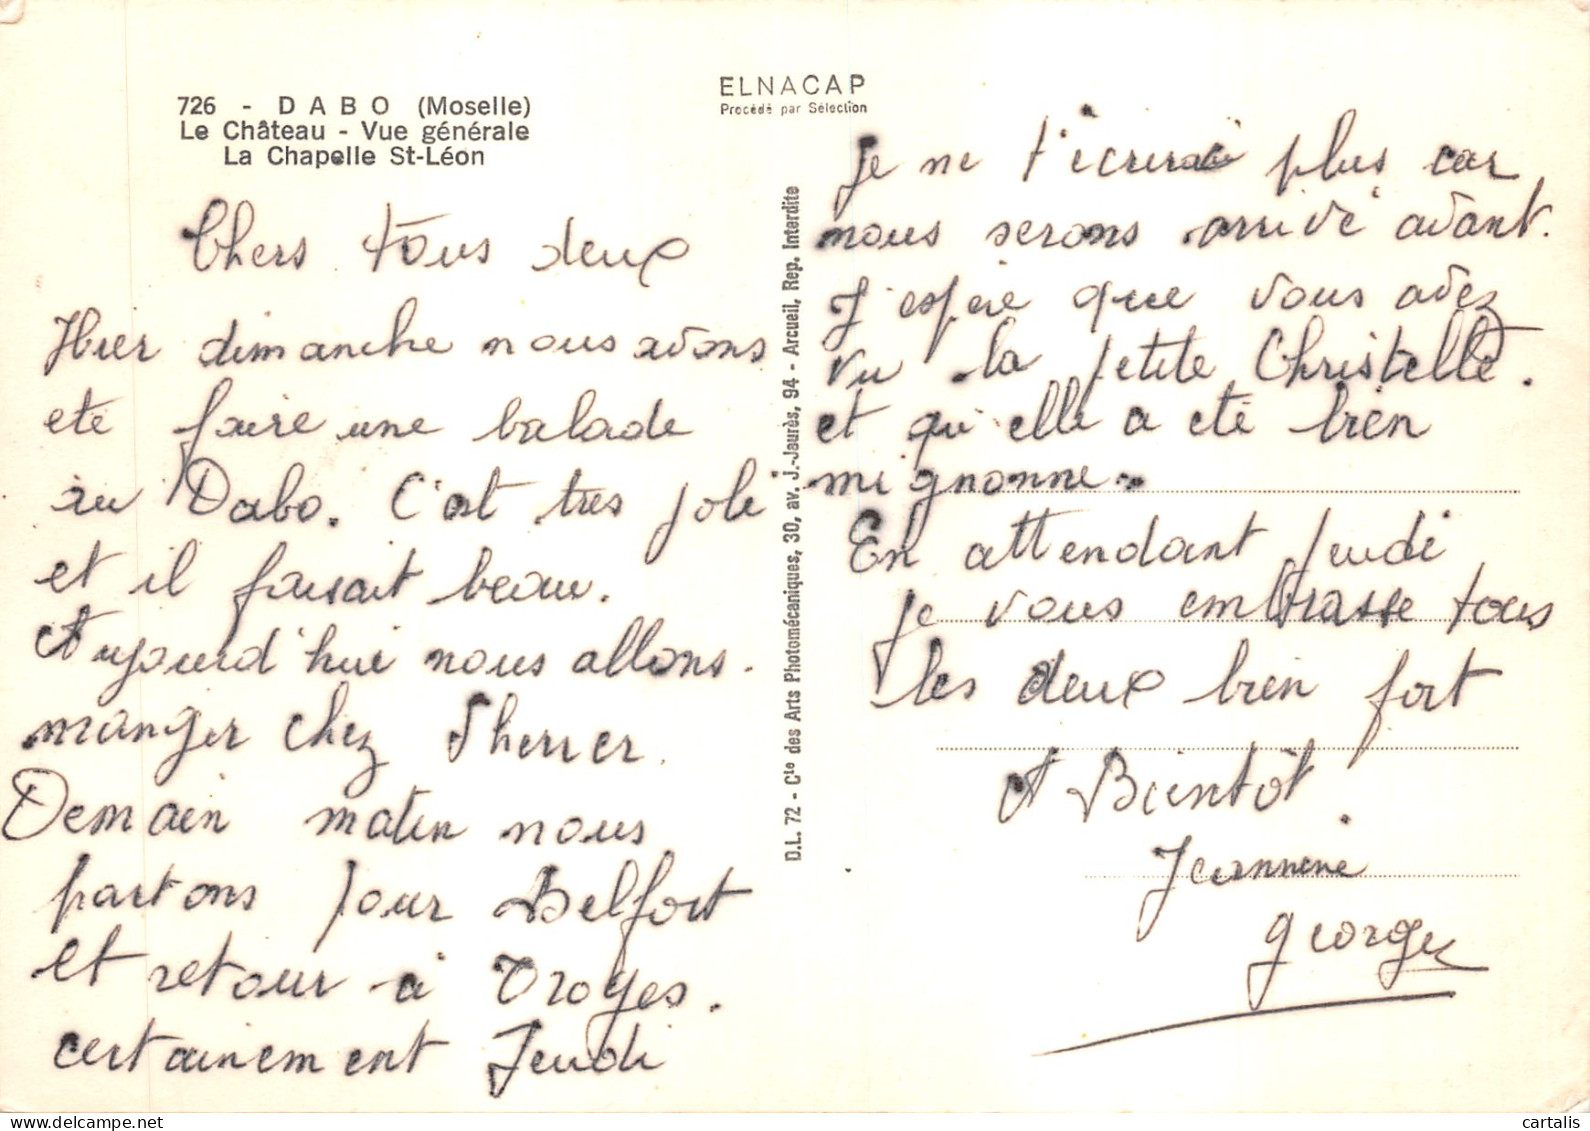 726 - DABO (Moselle)
Le Château - Vue générale
La Chapelle St-Léon
Chers tous deux
Hier dimanche nous avons
eté faire une balade
au Dabo. C'est tres joli
et il faisait beau.
Aujourd'hui nous allons
manger chez Sherrer.
Demain matin nous
partons pour Belfort
et retour à Troyes.
certainement Jeudi
ELNACAP
Procédé par Sélection
D.L. 72 - Cie des Arts Photomécaniques, 30, av. J.-Jaurès, 94 - Arcueil, Rep. Interdite
Je ne t'écrirai plus car
nous serons arrivé avant.
J'espère que vous avez
vu la petite Christelle.
et qu'elle a eté bien
mignonne.
En attendant jeudi
je vous embrasse tous
les deux bien fort
A Bientôt.
Jeannine
georges
cartalis